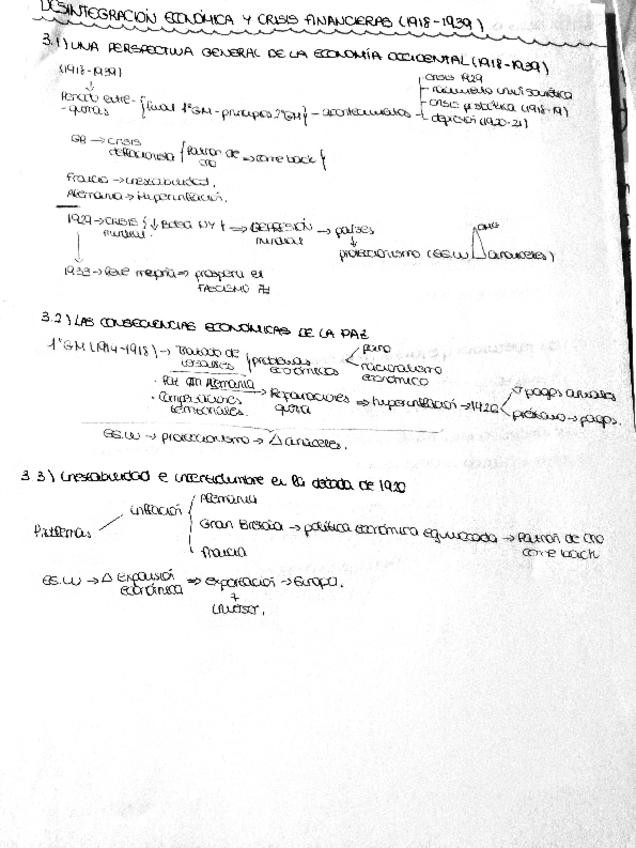 DESINTEGRACIÓN ECONÓMICA Y CRISIS FINANCIERAS (1918-1939)
3.1) UNA PERSPECTIVA GENERAL DE LA ECONOMÍA OCCIDENTAL (1918-1939)
(1918-1939)
crisis 1929
nacimiento unión soviética
Periodo entre-guerras {final 1ªGM - principios 2ªGM} - acontecimientos
crisis (1918-19)
depresión (1920-21)
GB → crisis deflacionista {Patrón de oro → come back {
Francia → inestabilidad.
Alemania → Hiperinflación.
1929 → CRISIS mundial. {↓ Bolsa NY} ⇒ DEPRESIÓN mundial → países
↓
proteccionismo (EE.UU △ aranceles)
1933 → leve mejoría ⇒ prospera el FASCISMO
3.2) LAS CONSECUENCIAS ECONÓMICAS DE LA PAZ
1ªGM (1914-1918) → Tratado de Versalles / problemas económicos
paro
nacionalismo económico
· Alemania
· Amputaciones territoriales.
→ Reparaciones guerra ⇒ hiperinflación → 1920
↑ pagos anuales
préstamo → pagos.
EE.UU → proteccionismo → △ aranceles.
3.3) Inestabilidad e incertidumbre en la década de 1920
Problemas
inflación
Alemania
Gran Bretaña → política económica equivocada → Patrón de oro come back
Francia
EE.UU → △ Expansión económica ⇒ exportación → Europa.
+
inversor.